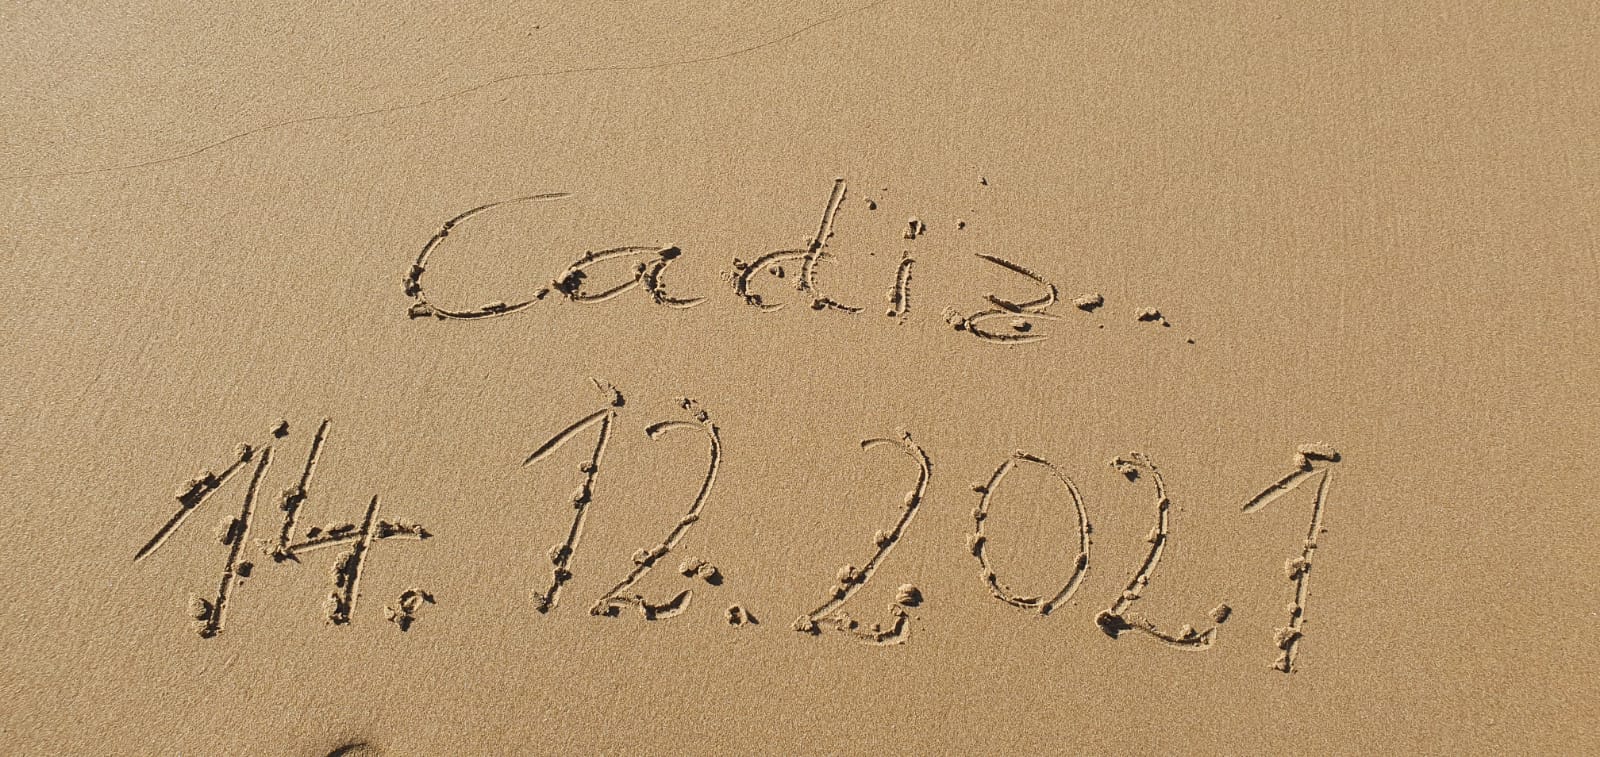 Cadiz..
14.12.2021